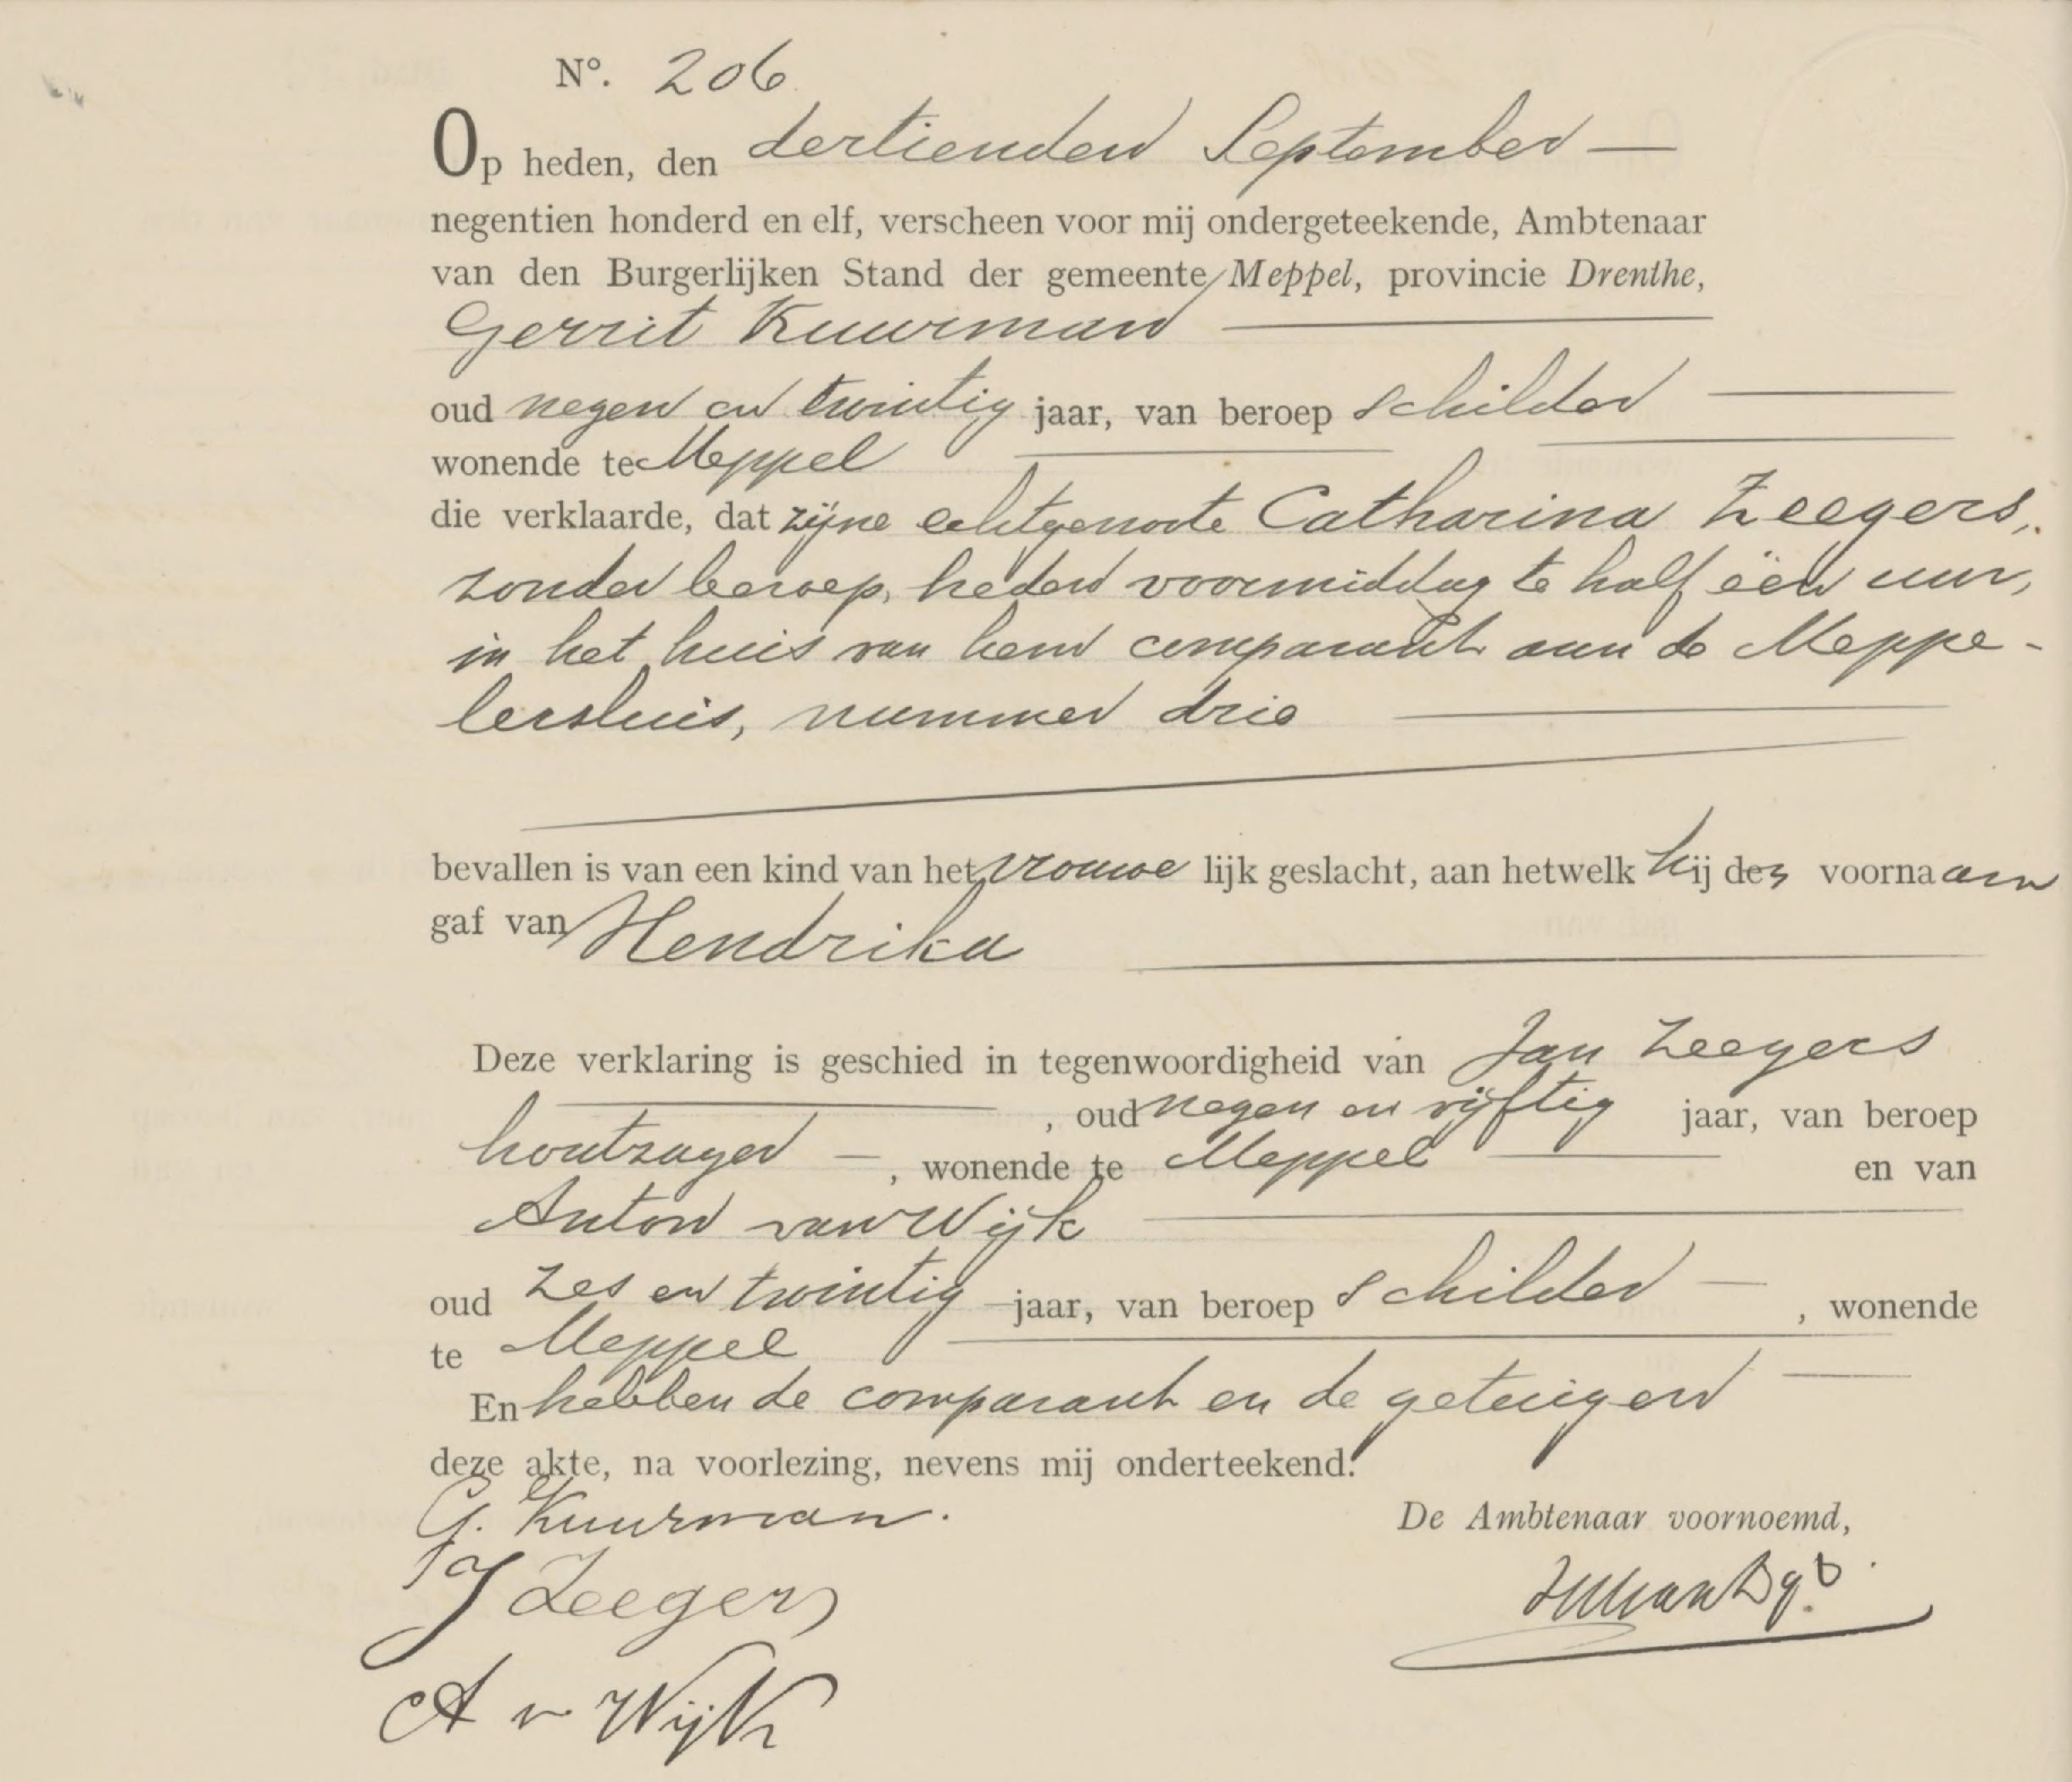 Nº. 206
Op heden, den dertienden September
negentien honderd en elf, verscheen voor mij ondergeteekende, Ambtenaar
van den Burgerlijken Stand der gemeente Meppel, provincie Drenthe,
Gerrit Kuurman
oud negen en twintig jaar, van beroep schilder
wonende te Meppel
die verklaarde, dat zijne echtgenoote Catharina Zeegers,
zonder beroep, heden voormiddag te half één uur,
in het huis van hem comparant aan de Meppe-
lersluis, nummer drie
bevallen is van een kind van het vrouwelijk geslacht, aan hetwelk hij den voornaam
gaf van Hendrika
Deze verklaring is geschied in tegenwoordigheid van Jan Zeegers
, oud negen en vijftig jaar, van beroep
houtzager, wonende te Meppel en van
Anton van Wijk
oud zes en twintig jaar, van beroep schilder, wonende
te Meppel
En hebben de comparant en de getuigen
deze akte, na voorlezing, nevens mij onderteekend.
G. Kuurman.
De Ambtenaar voornoemd,
J Zeegers
A v Wijk